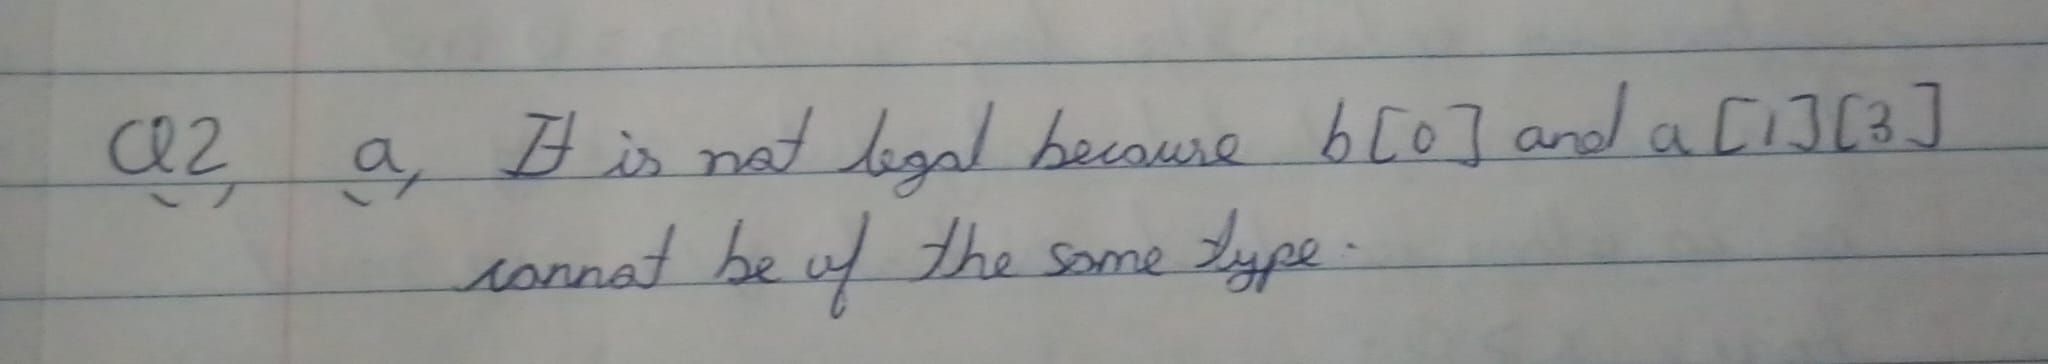 Q2, a, It is not legal because b[0] and a[1][3]
cannot be of the same type.